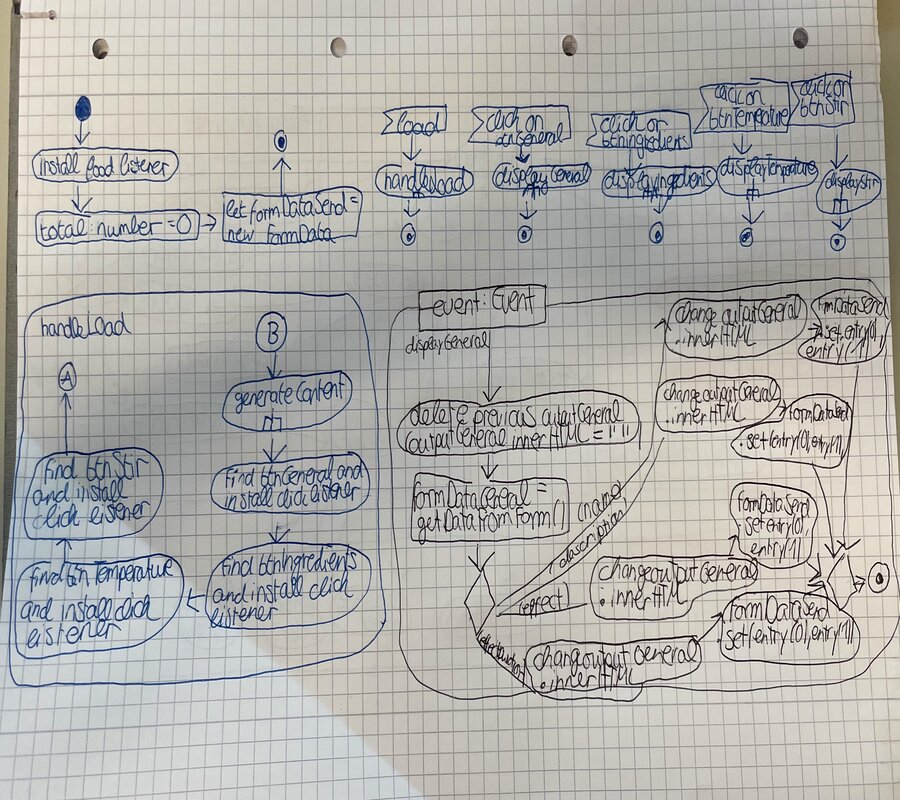 install load listener
total: number = 0
let formDataSend =
new FormData
load
handleload
click on
btnGeneral
displayGeneral
click on
btnIngredients
displayIngredients
click on
btnTemperature
displayTemperature
click on
btnStir
displayStir
handleLoad
A
find btnStir
and install
click listener
find btnTemperature
and install click
listener
B
generateContent
find btnGeneral and
install click listener
find btnIngredients
and install click
listener
event: Event
displayGeneral
delete previous outputGeneral
outputGeneral.innerHTML = ""
formDataGeneral =
getDataFromForm()
name
description
effect
change outputGeneral
.innerHTML
formDataSend
.set(entry(0),
entry(1))
change outputGeneral
.innerHTML
formDataSend
.set(entry(0),entry(1))
change outputGeneral
.innerHTML
formDataSend
.set(entry(0),
entry(1))
change output General
.innerHTML
formDataSend
.set(entry(0),entry(1))